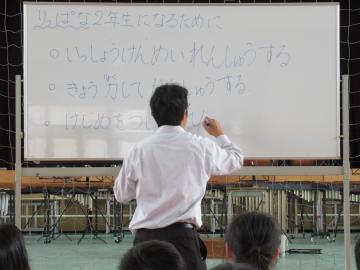 りっぱな2年生になるために
○いっしょうけんめいれんしゅうする
○きょう力して しゅうする
○けじめをつけ